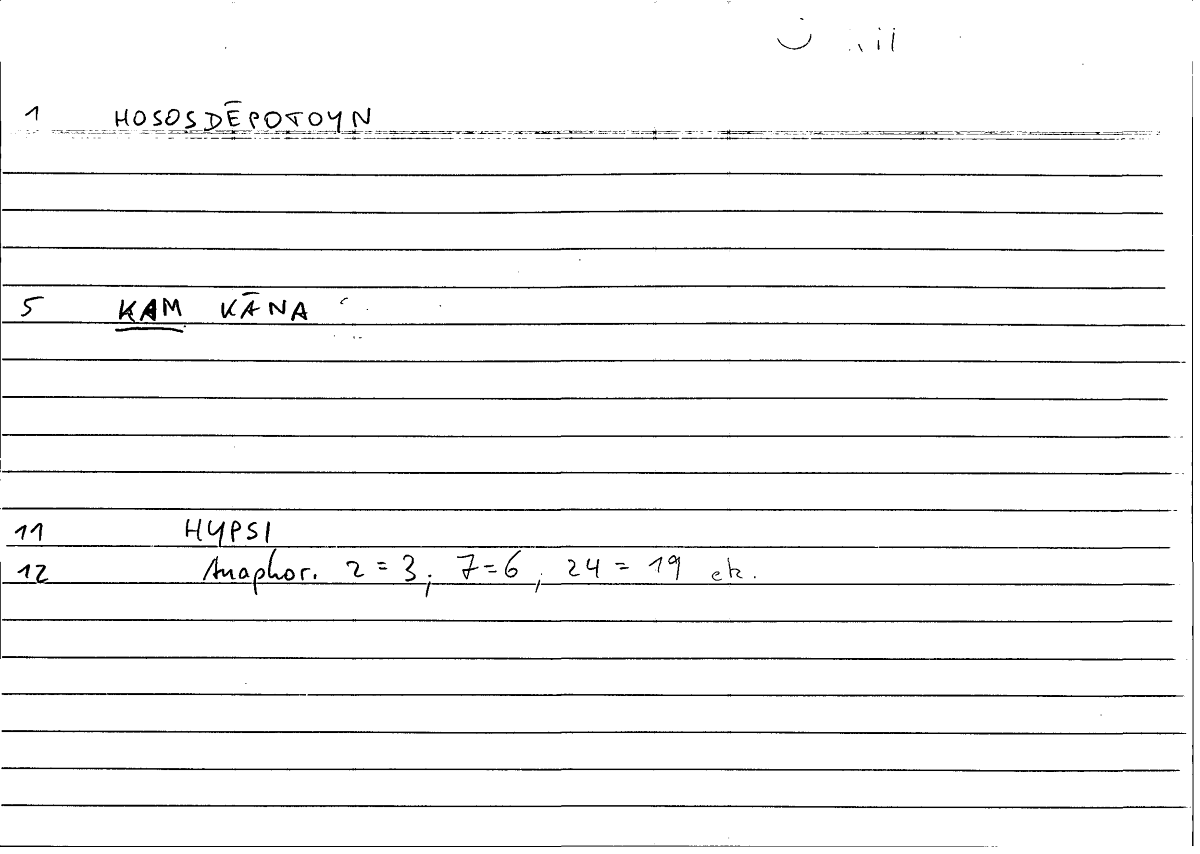 1 HOSOSDĒPOTOYN
5 KAM KĀNA
11 HYPSI
12 Anaphor. 2 = 3; 7 = 6; 24 = 19 etc.